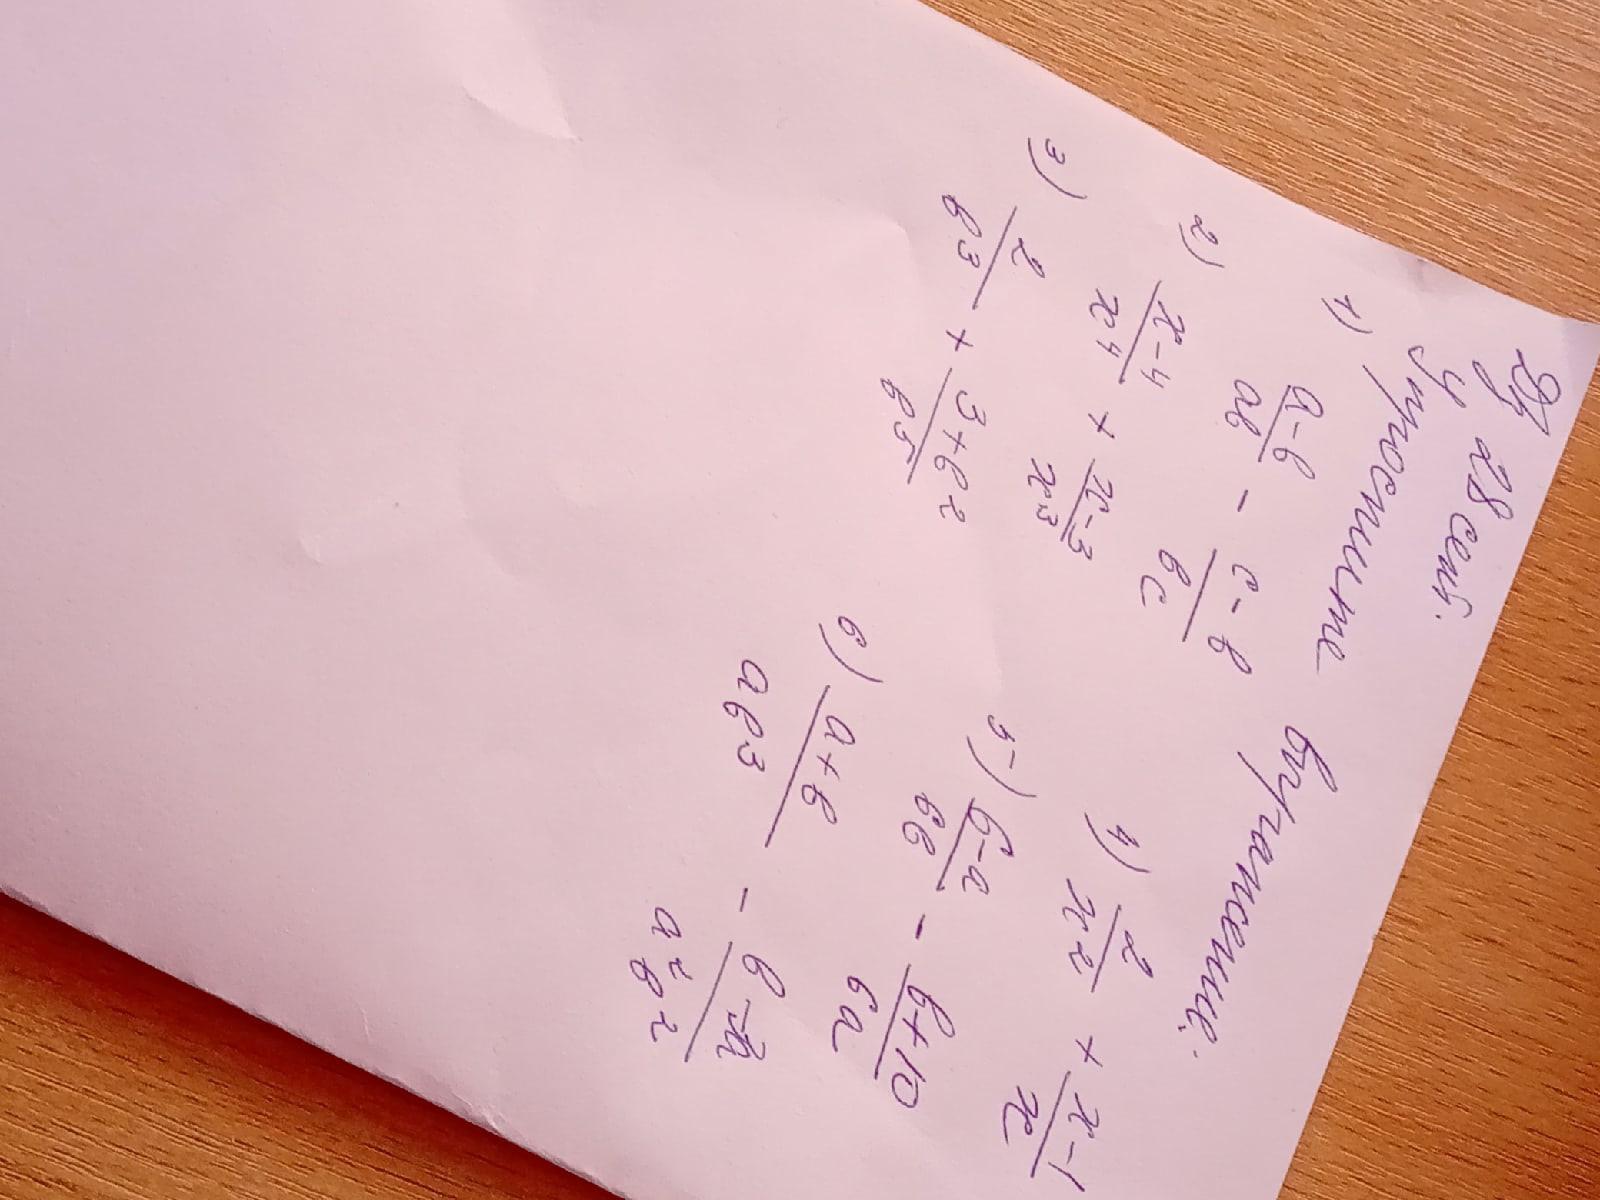 28 сент.
Упростите выражение.
1) \frac{a-b}{ab} - \frac{c-b}{bc}
2) \frac{x-4}{x^4} + \frac{x-3}{x^3}
3) \frac{2}{b^3} + \frac{3+b^2}{b^5}
4) \frac{2}{x^2} + \frac{x-1}{x}
5) \frac{6-a}{6b} - \frac{b+10}{6a}
6) \frac{a+b}{ab^3} - \frac{b-a}{a^2b^2}